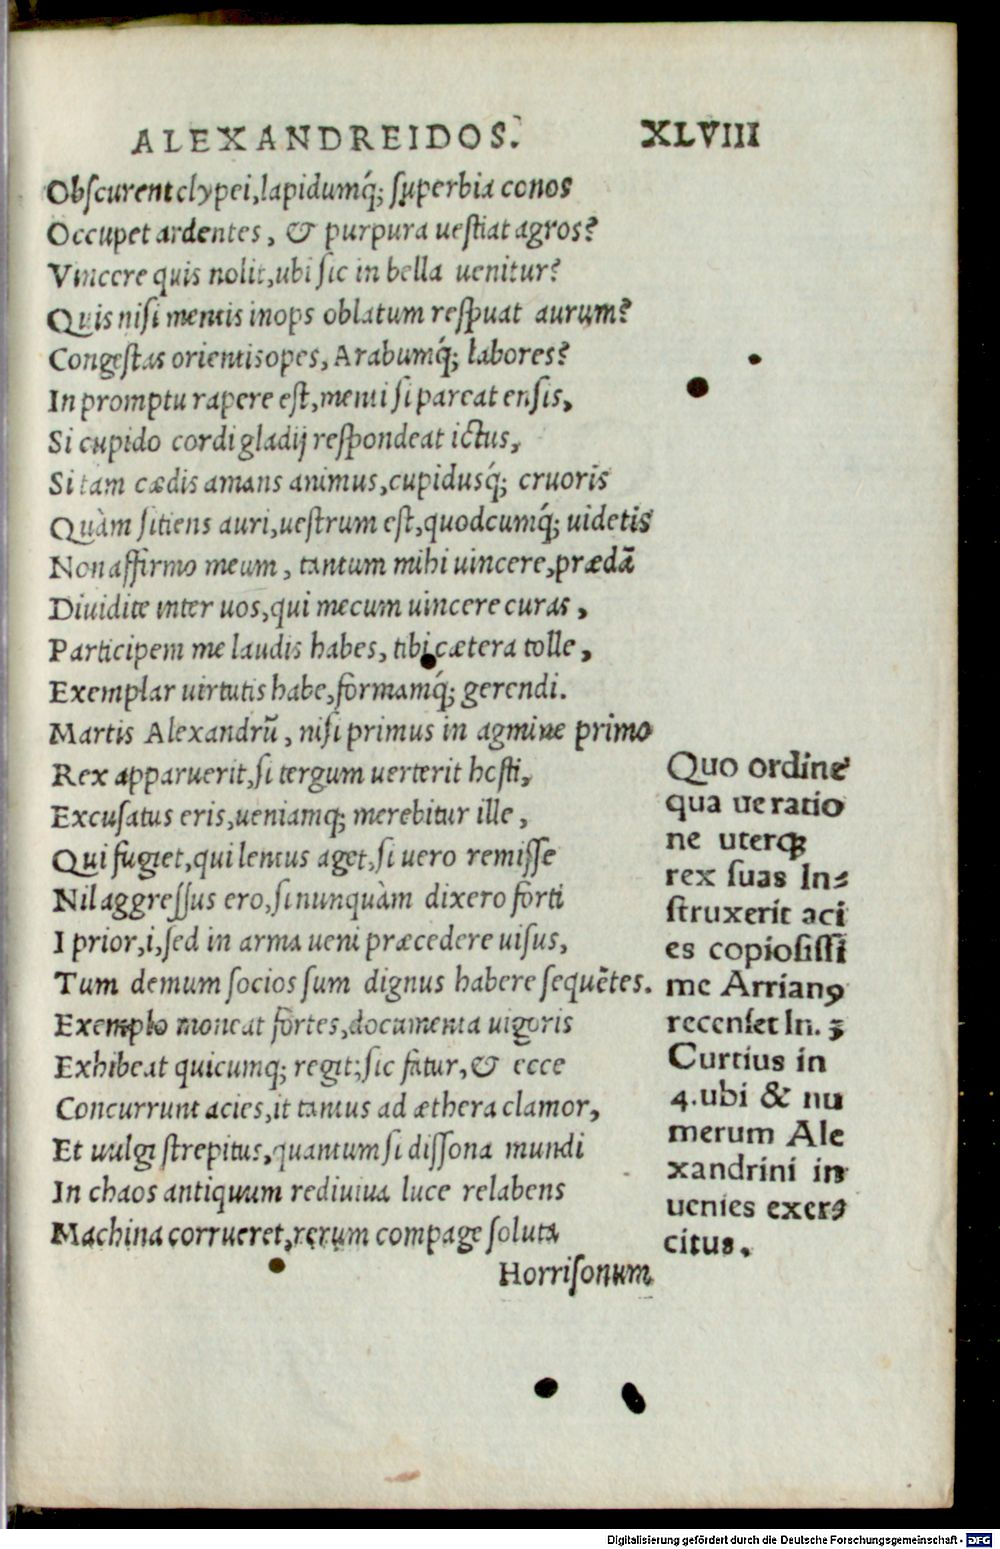 ALEXANDREIDOS. XLVIII
Obſcurent clypei, lapidumq́; ſuperbia conos
Occupet ardentes, & purpura ueſtiat agros?
Vincere quis nolit, ubi ſic in bella uenitur?
Quis niſi mentis inops oblatum reſpuat aurum?
Congeſtas orientis opes, Arabumq́; labores?
In promptu rapere eſt, menti ſi pareat enſis,
Si cupido cordi gladij reſpondeat ictus,
Si tam cædis amans animus, cupidusq́; cruoris
Quàm ſitiens auri, ueſtrum eſt, quodcumq́; uidetis
Non affirmo meum, tantum mihi uincere, prædā
Diuidite inter uos, qui mecum uincere curas,
Participem me laudis habes, tibi cætera tolle,
Exemplar uirtutis habe, formamq́; gerendi.
Martis Alexandrū, niſi primus in agmine primo
Rex apparuerit, ſi tergum uerterit hoſti,
Excuſatus eris, ueniamq; merebitur ille,
Qui fugiet, qui lentus aget, ſi uero remiſſe
Nil aggreſſus ero, ſi nunquàm dixero forti
I prior, i, ſed in arma ueni præcedere uiſus,
Tum demum ſocios ſum dignus habere ſequētes.
Exemplo moneat fortes, documenta uigoris
Exhibeat quicumq; regit; ſic fatur, & ecce
Concurrunt acies, it tantus ad æthera clamor,
Et uulgi ſtrepitus, quantum ſi diſſona mundi
In chaos antiquum rediuiua luce relabens
Machina corrueret, rerum compage ſoluta
Horriſonum
Quo ordine
qua ue ratio
ne uterqꝫ
rex ſuas In⸗
ſtruxerit aci
es copioſiſſi
me Arrianꝰ
recenſet In. 3
Curtius in
4. ubi & nu
merum Ale
xandrini in
uenies exer⸗
citus.
Digitalisierung gefördert durch die Deutsche Forschungsgemeinschaft - DFG